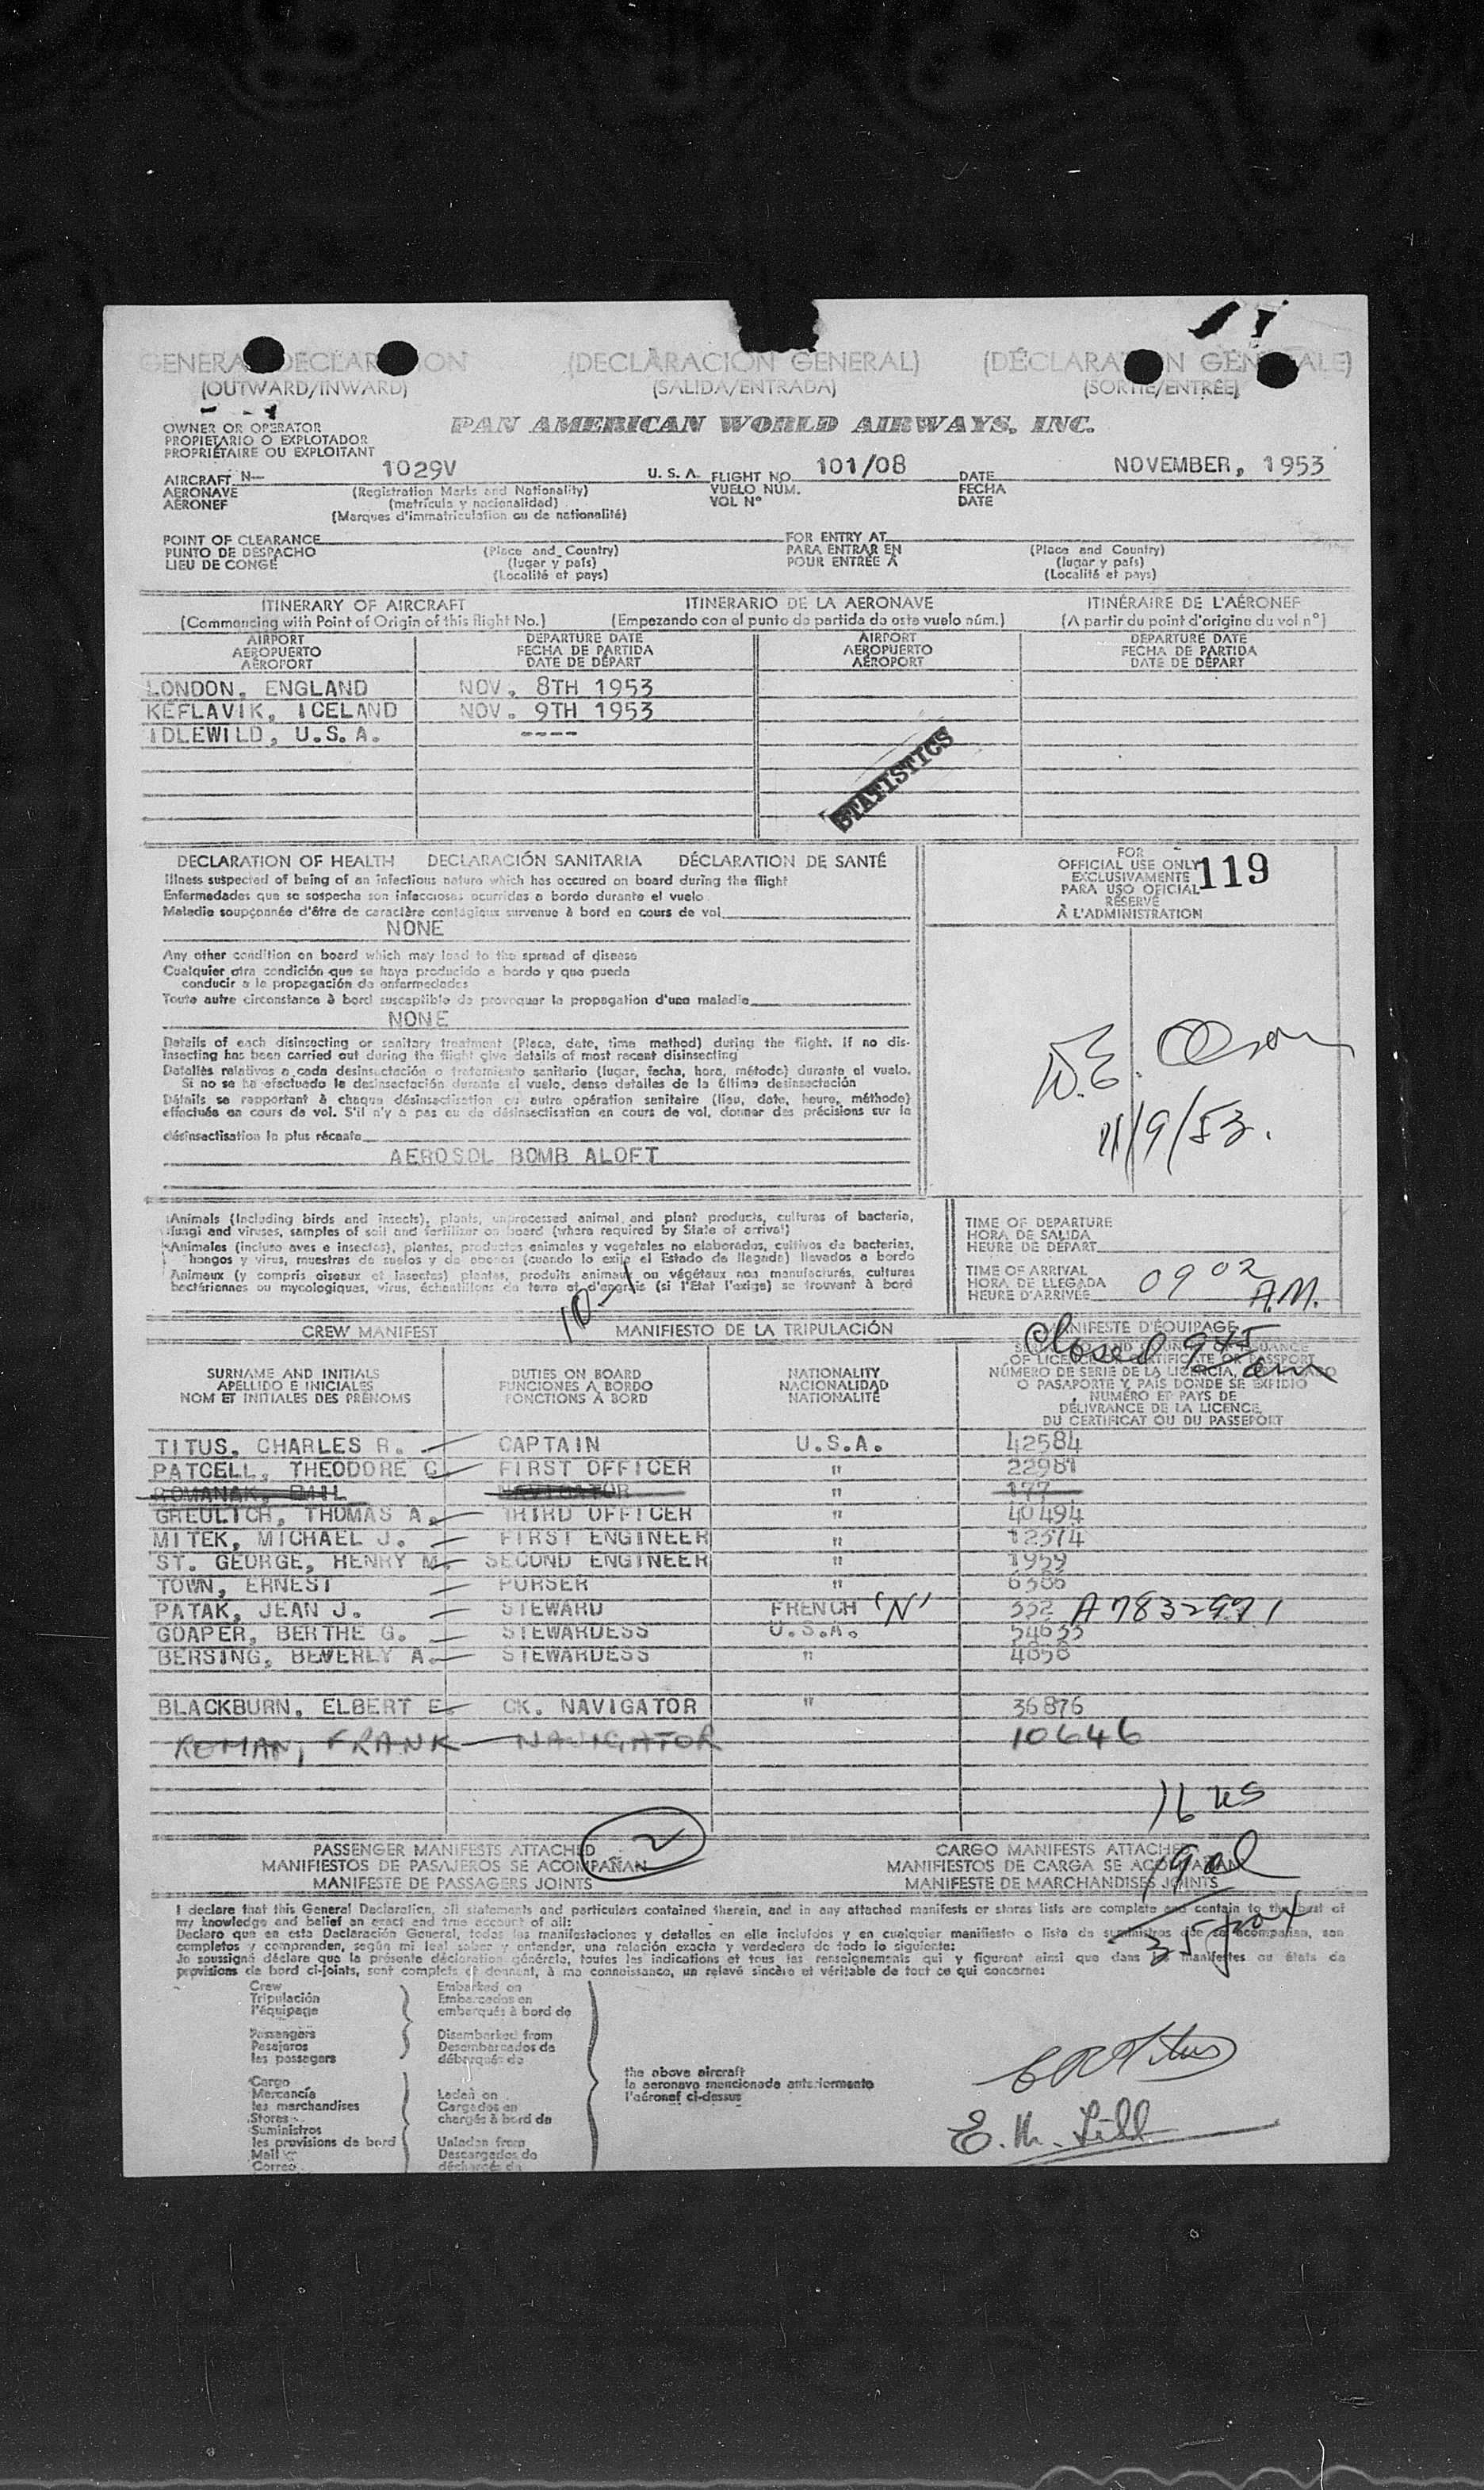 GENERAL DECLARATION (DECLARACIÓN GENERAL) (DÉCLARATION GÉNÉRALE)
(OUTWARD/INWARD) (SALIDA/ENTRADA) (SORTIE/ENTRÉE)
OWNER OR OPERATOR
PROPIETARIO O EXPLOTADOR
PROPRIÉTAIRE OU EXPLOITANT
PAN AMERICAN WORLD AIRWAYS, INC.
AIRCRAFT N— 1029V U. S. A. FLIGHT NO. 101/08 DATE NOVEMBER, 1953
AERONAVE (Registration Marks and Nationality) VUELO NÚM. FECHA
AÉRONEF (matrícula y nacionalidad) VOL Nº DATE
(Marques d'immatriculation ou de nationalité)
POINT OF CLEARANCE FOR ENTRY AT
PUNTO DE DESPACHO (Place and Country) PARA ENTRAR EN (Place and Country)
LIEU DE CONGÉ (lugar y país) POUR ENTRÉE A (lugar y país)
(Localité et pays) (Localité et pays)
ITINERARY OF AIRCRAFT ITINERARIO DE LA AERONAVE ITINÉRAIRE DE L'AÉRONEF
(Commencing with Point of Origin of this flight No.) (Empezando con el punto de partida de este vuelo núm.) (A partir du point d'origine du vol nº)
AIRPORT DEPARTURE DATE AIRPORT DEPARTURE DATE
AEROPUERTO FECHA DE PARTIDA AEROPUERTO FECHA DE PARTIDA
AÉROPORT DATE DE DÉPART AÉROPORT DATE DE DÉPART
LONDON, ENGLAND NOV. 8TH 1953
KEFLAVIK, ICELAND NOV. 9TH 1953
IDLEWILD, U.S.A. ----
STATISTICS
DECLARATION OF HEALTH DECLARACIÓN SANITARIA DÉCLARATION DE SANTÉ
Illness suspected of being of an infectious nature which has occured on board during the flight
Enfermedades que se sospecha son infecciosas ocurridas a bordo durante el vuelo
Maladie soupçonnée d'être de caractère contagieux survenue à bord en cours de vol
NONE
FOR
OFFICIAL USE ONLY
EXCLUSIVAMENTE
PARA USO OFICIAL
RÉSERVÉ
À L'ADMINISTRATION
119
Any other condition on board which may lead to the spread of disease
Cualquier otra condición que se haya producido a bordo y que pueda
conducir a la propagación de enfermedades
Toute autre circonstance à bord susceptible de provoquer la propagation d'une maladie
NONE
Details of each disinsecting or sanitary treatment (Place, date, time method) during the flight. If no dis-
insecting has been carried out during the flight give details of most recent disinsecting
Detalles relativos a cada desinsectación o tratamiento sanitario (lugar, fecha, hora, método) durante el vuelo.
Si no se ha efectuado la desinsectación durante el vuelo, dense detalles de la última desinsectación
Détails se rapportant à chaque désinsectisation ou autre opération sanitaire (lieu, date, heure, méthode)
effectuée en cours de vol. S'il n'y a pas eu de désinsectisation en cours de vol, donner des précisions sur la
désinsectisation la plus récente
AEROSOL BOMB ALOFT
W.E. Olson
11/9/53.
Animals (Including birds and insects), plants, unprocessed animal and plant products, cultures of bacteria,
fungi and viruses, samples of soil and fertilizer on board (where required by State of arrival)
Animales (incluso aves e insectos), plantas, productos animales y vegetales no elaborados, cultivos de bacterias,
hongos y virus, muestras de suelos y de abonos (cuando lo exija el Estado de llegada) llevados a bordo
Animaux (y compris oiseaux et insectes) plantes, produits animaux ou végétaux non manufacturés, cultures
bactériennes ou mycologiques, virus, échantillons de terre et d'engrais (si l'Etat l'exige) se trouvant à bord
10-1
TIME OF DEPARTURE
HORA DE SALIDA
HEURE DE DÉPART
TIME OF ARRIVAL
HORA DE LLEGADA
HEURE D'ARRIVÉE
0902 A.M.
Closed 945 am
CREW MANIFEST MANIFIESTO DE LA TRIPULACIÓN MANIFESTE D'ÉQUIPAGE
SURNAME AND INITIALS DUTIES ON BOARD NATIONALITY
APELLIDO E INICIALES FUNCIONES A BORDO NACIONALIDAD
NOM ET INITIALES DES PRÉNOMS FONCTIONS À BORD NATIONALITÉ
OF LICENCE CERTIFICATE OR PASSPORT
NÚMERO DE SERIE DE LA LICENCIA,
O PASAPORTE Y PAÍS DONDE SE EXPIDIÓ
NUMÉRO ET PAYS DE
DÉLIVRANCE DE LA LICENCE,
DU CERTIFICAT OU DU PASSEPORT
TITUS, CHARLES R. CAPTAIN U.S.A. 42584
PATCELL, THEODORE C FIRST OFFICER " 22981
ROMANAK, EMIL NAVIGATOR " 177
GREULICH, THOMAS A. THIRD OFFICER " 40494
MITEK, MICHAEL J. FIRST ENGINEER " 12574
ST. GEORGE, HENRY M. SECOND ENGINEER " 1959
TOWN, ERNEST PURSER " 6386
PATAK, JEAN J. STEWARD FRENCH 'N' 552 A7832971
GOAPER, BERTHE G. STEWARDESS U.S.A. 54633
BERSING, BEVERLY A. STEWARDESS " 4858
BLACKBURN, ELBERT E. CK. NAVIGATOR " 36876
ROMAN, FRANK NAVIGATOR 10646
16 us
19 al
35
2
PASSENGER MANIFESTS ATTACHED CARGO MANIFESTS ATTACHED
MANIFIESTOS DE PASAJEROS SE ACOMPAÑAN MANIFIESTOS DE CARGA SE ACOMPAÑAN
MANIFESTE DE PASSAGERS JOINTS MANIFESTE DE MARCHANDISES JOINTS
I declare that this General Declaration, all statements and particulars contained therein, and in any attached manifests or stores lists are complete and contain to the best of
my knowledge and belief an exact and true account of all:
Declaro que en esta Declaración General, todas las manifestaciones y detalles en ella incluídos y en cualquier manifiesto o lista de suministros que se acompañan, son
completos y comprenden, según mi leal saber y entender, una relación exacta y verdadera de todo lo siguiente:
Je soussigné déclare que la présente déclaration générale, toutes les indications et tous les renseignements qui y figurent ainsi que dans les manifestes ou états de
provisions de bord ci-joints, sont complets et donnent, à ma connaissance, un relevé sincère et véritable de tout ce qui concerne:
Crew Embarked on
Tripulación Embarcados en
l'équipage embarqués à bord de
Passengers Disembarked from
Pasajeros Desembarcados de
les passagers débarqués de
the above aircraft
la aeronave mencionada anteriormente
l'aéronef ci-dessus
Cargo
Mercancía Laden on
les marchandises Cargados en
Stores chargés à bord de
Suministros
les provisions de bord Unladen from
Mail Descargados de
Correo déchargés de
C R Titus
E. M. Lill